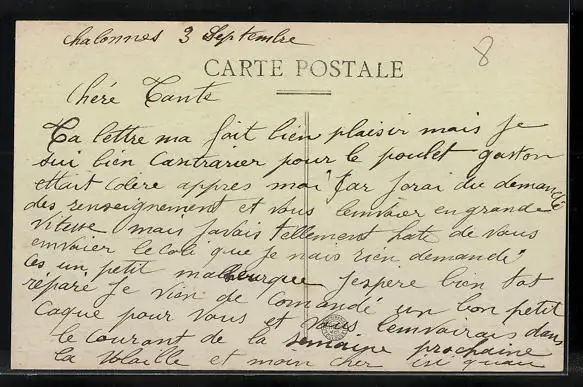 Chalonnes 3 Septembre
8
CARTE POSTALE
Chéré Tante
Ta lettre ma fait bien plaisir mais Je
sui bien Cantrarier pour le poulet gaston
ettait Colère appres moi Car Jorai du demandé
des renseignement et vous lenvoier en grande
vitesse mais Javais tellement hate de vous
envoier le coli que Je nais rien demandé
Ces un petit malheur que Jespère bien tot
réparé Je vien de Comandé un bon petit
Caque pour vous et vous lenvairais dans
le Courant de la semaine prochaine
la Volaille et moin cher ici quau